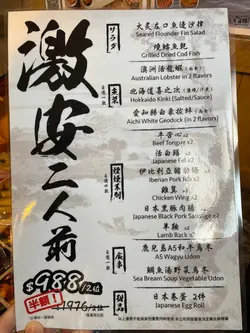 激安二人前
サラダ
大炙左口魚邊沙律
Seared Flounder Fin Salad
燒鱈魚乾
Grilled Dried Cod Fish
主菜
4選一款
澳洲活龍蝦(兩食)
Australian Lobster in 2 flavors
北海道喜之次(鹽燒/汁煮)
Hokkaido Kinki (Salted/Sauce)
愛知縣白象拔蚌(兩食)
Aichi White Geoduck (in 2 flavors)
牛舌心x2
Beef Tongue x2
活白鱔x2
Japanese Eel x2
伊比利亞豬肋條x2
Iberian Pork Rib x2
雞翼x2
Chicken Wing x2
日本黑豚肉腸
Japanese Black Pork Sausage x2
羊鞍x2
Lamb Rack x2
食事
鹿兒島A5和牛烏冬
A5 Wagyu Udon
鯛魚湯野菜烏冬
Sea Bream Soup Vegetable Udon
甜品
日本卷蛋 2件
Japanese Egg Roll
$988/2位
半額!
$1976/2位